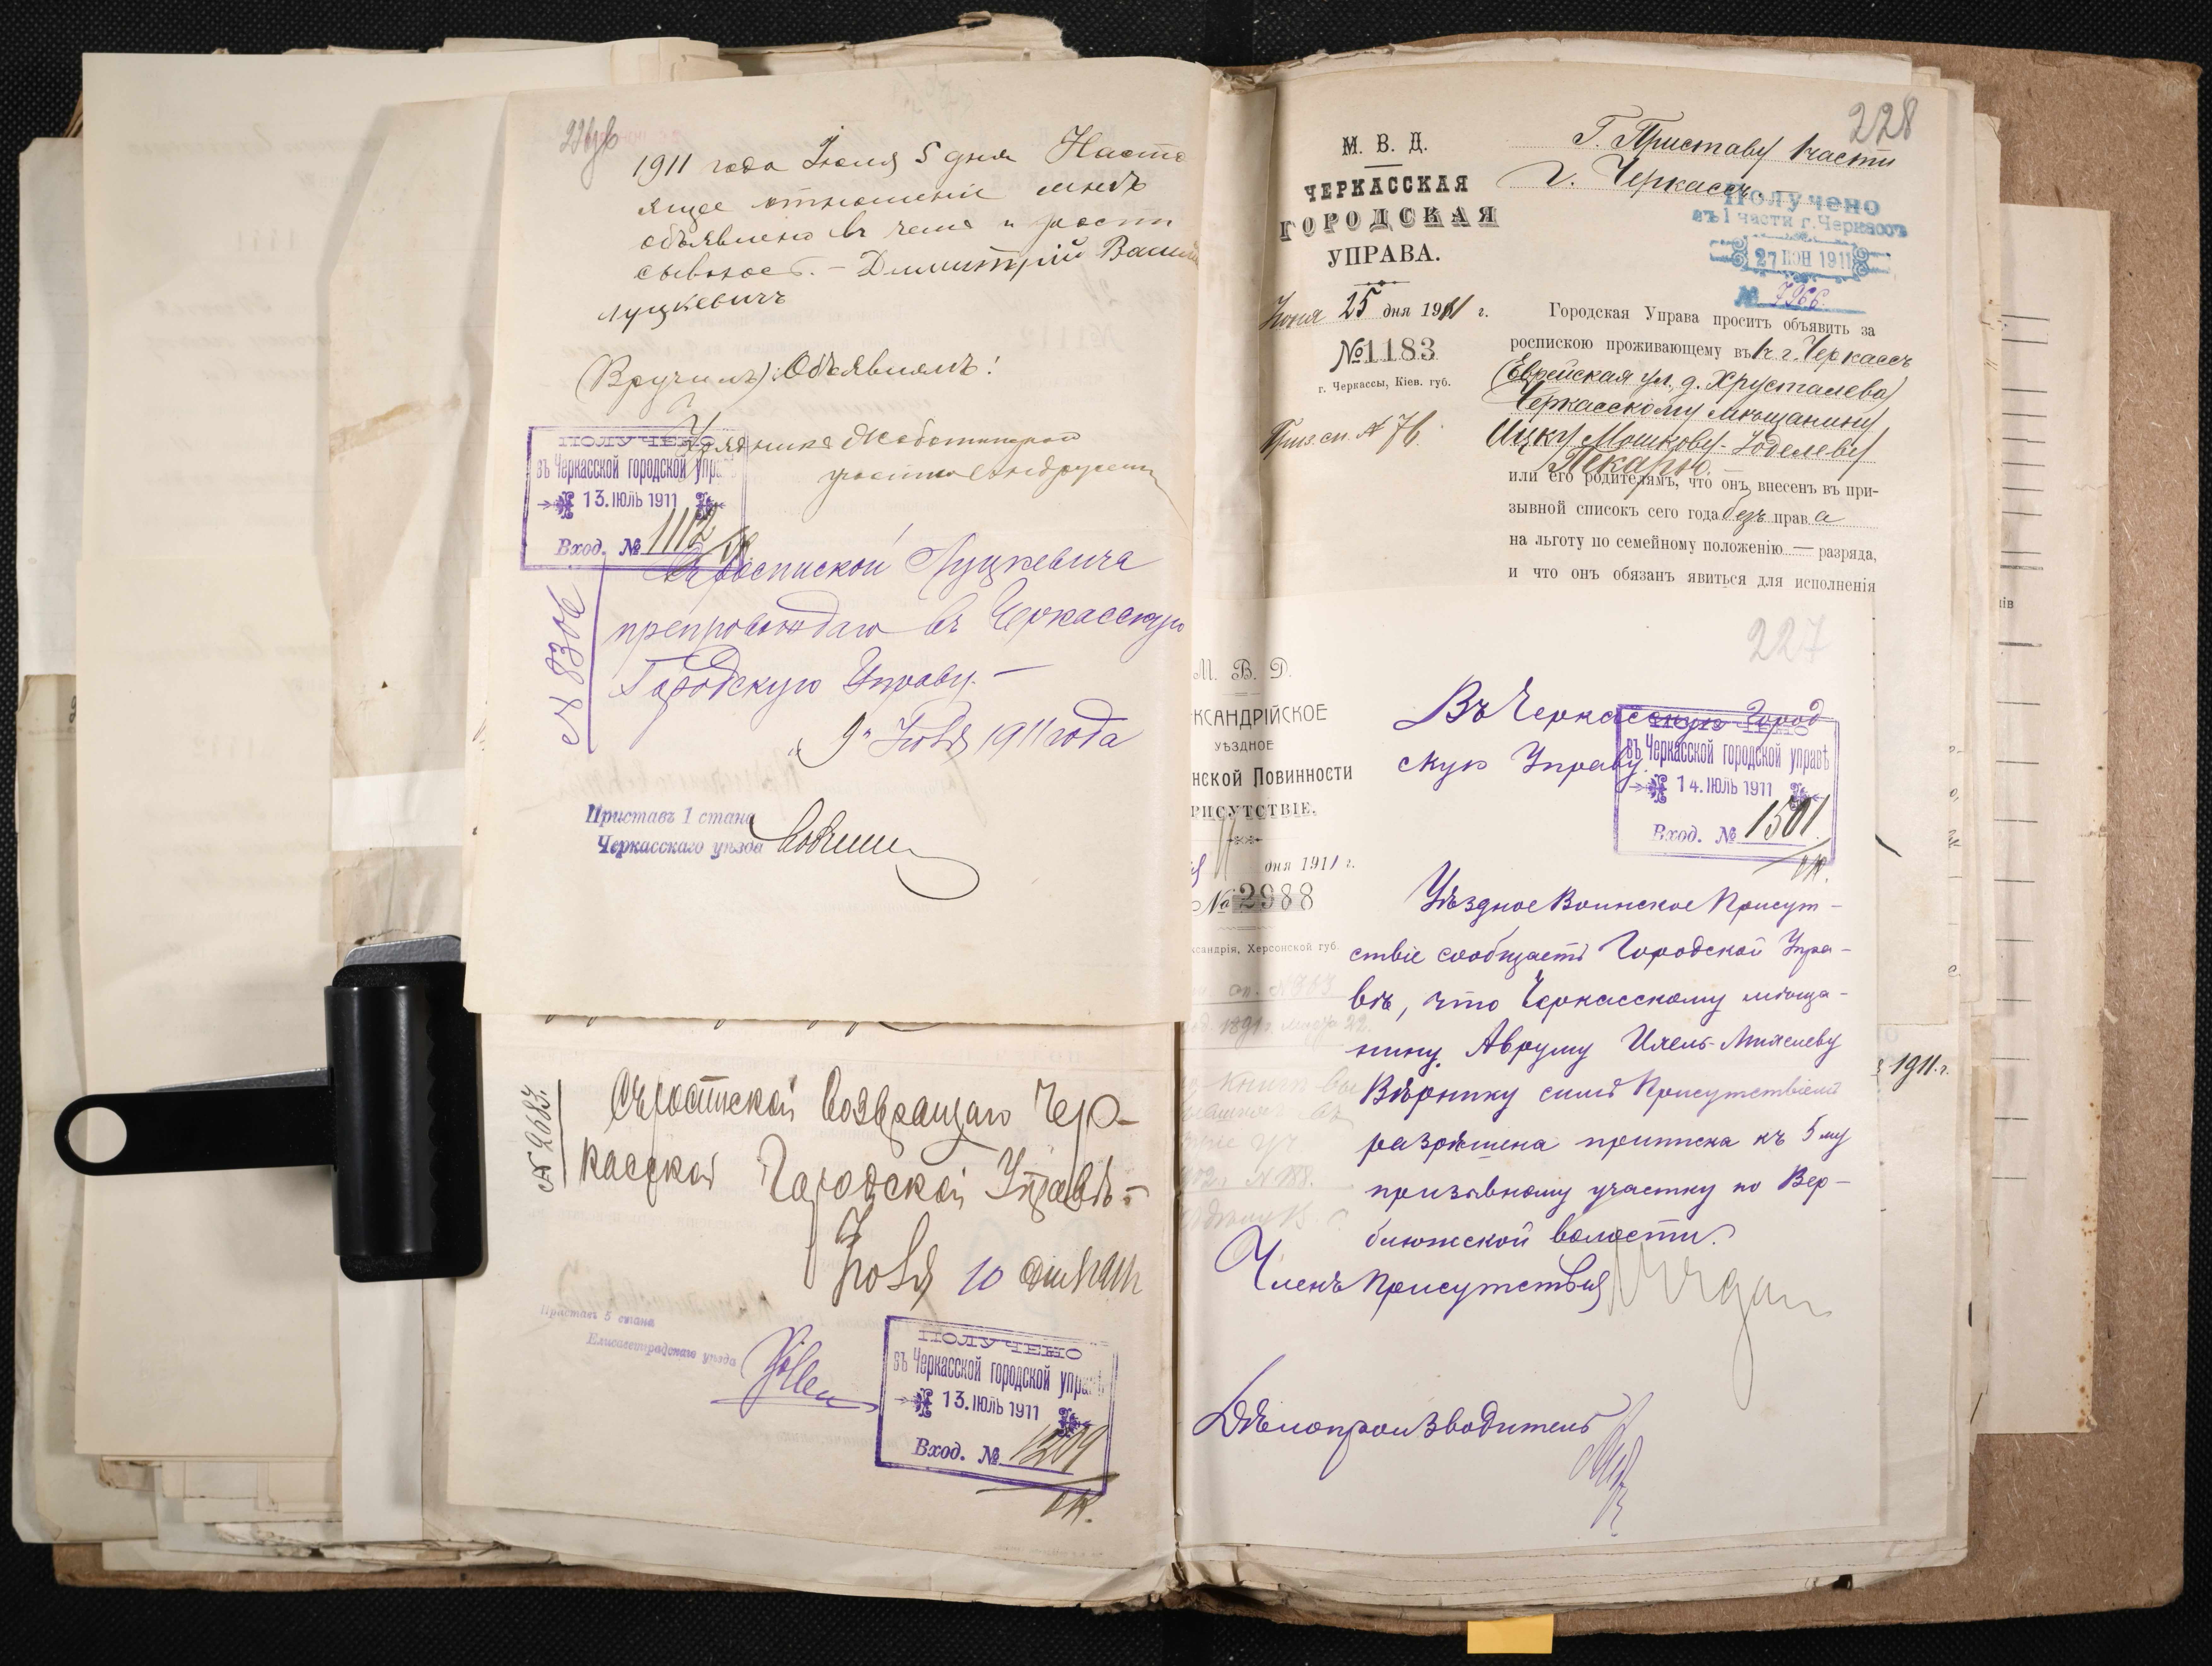 1911 года Іюля 5 дня Насто
ящее отношеніе мнѣ
объявлено въ чемъ и роспи
сываюсь. – Димитрій Васил
Луцкевичъ
(Вручилъ) Объявилъ:
Урядникъ
участка
ПОЛУЧЕНО
въ Черкасской городской упр
13. ІЮЛЬ 1911
Вход. № 1112
Съ роспиской Луцкевича
препровождаю въ Черкасскую
Городскую Управу. –
№ 8306
„9" Іюля 1911 года
Приставъ 1 стана
Черкасскаго уѣзда
№ 2683.
Съ роспиской возвращаю Чер-
касской Городской Управѣ. –
Іюля 10 дня 1911
Приставъ 5 стана
Елисаветградскаго уѣзда
ПОЛУЧЕНО
въ Черкасской городской управѣ
13. ІЮЛЬ 1911
Вход. № 1209
228
М. В. Д.
ЧЕРКАССКАЯ
ГОРОДСКАЯ
УПРАВА.
Іюня 25 дня 1911 г.
№ 1183
г. Черкассы, Кіев. губ.
Приз. сп. № 76.
Г. Приставу 1 части
г. Черкассъ
Получено
въ 1 части г. Черкассъ
27 ІЮН 1911
№ 7966.
Городская Управа проситъ объявить за
роспискою проживающему въ г. Черкассъ
(Еврейская ул. д. Хрусталева)
Черкасскому мѣщанину
Ицку Мошкову-Юделеву
Пекарю.
или его родителямъ, что онъ внесенъ въ при-
зывной списокъ сего года безъ права
на льготу по семейному положенію — разряда,
и что онъ обязанъ явиться для исполненія
227
М. В. Д.
КСАНДРІЙСКОЕ
УѢЗДНОЕ
нской Повинности
РИСУТСТВІЕ.
11 дня 1911 г.
№ 2988
ксандрія, Херсонской губ.
Въ Черкасскую Город
скую Управу.
ПОЛУЧЕНО
въ Черкасской городской управѣ
14. ІЮЛЬ 1911
Вход. № 1301.
Уѣздное Воинское Присут-
ствіе сообщаетъ Городской Упра-
вѣ, что Черкасскому мѣща-
нину Авруму Ихель-Михелеву
Вѣрнику симъ Присутствіемъ
разрѣшена приписка къ 5му
призывному участку по Вер-
блюжской волости.
Членъ Присутствія
Дѣлопроизводитель
1911 г.